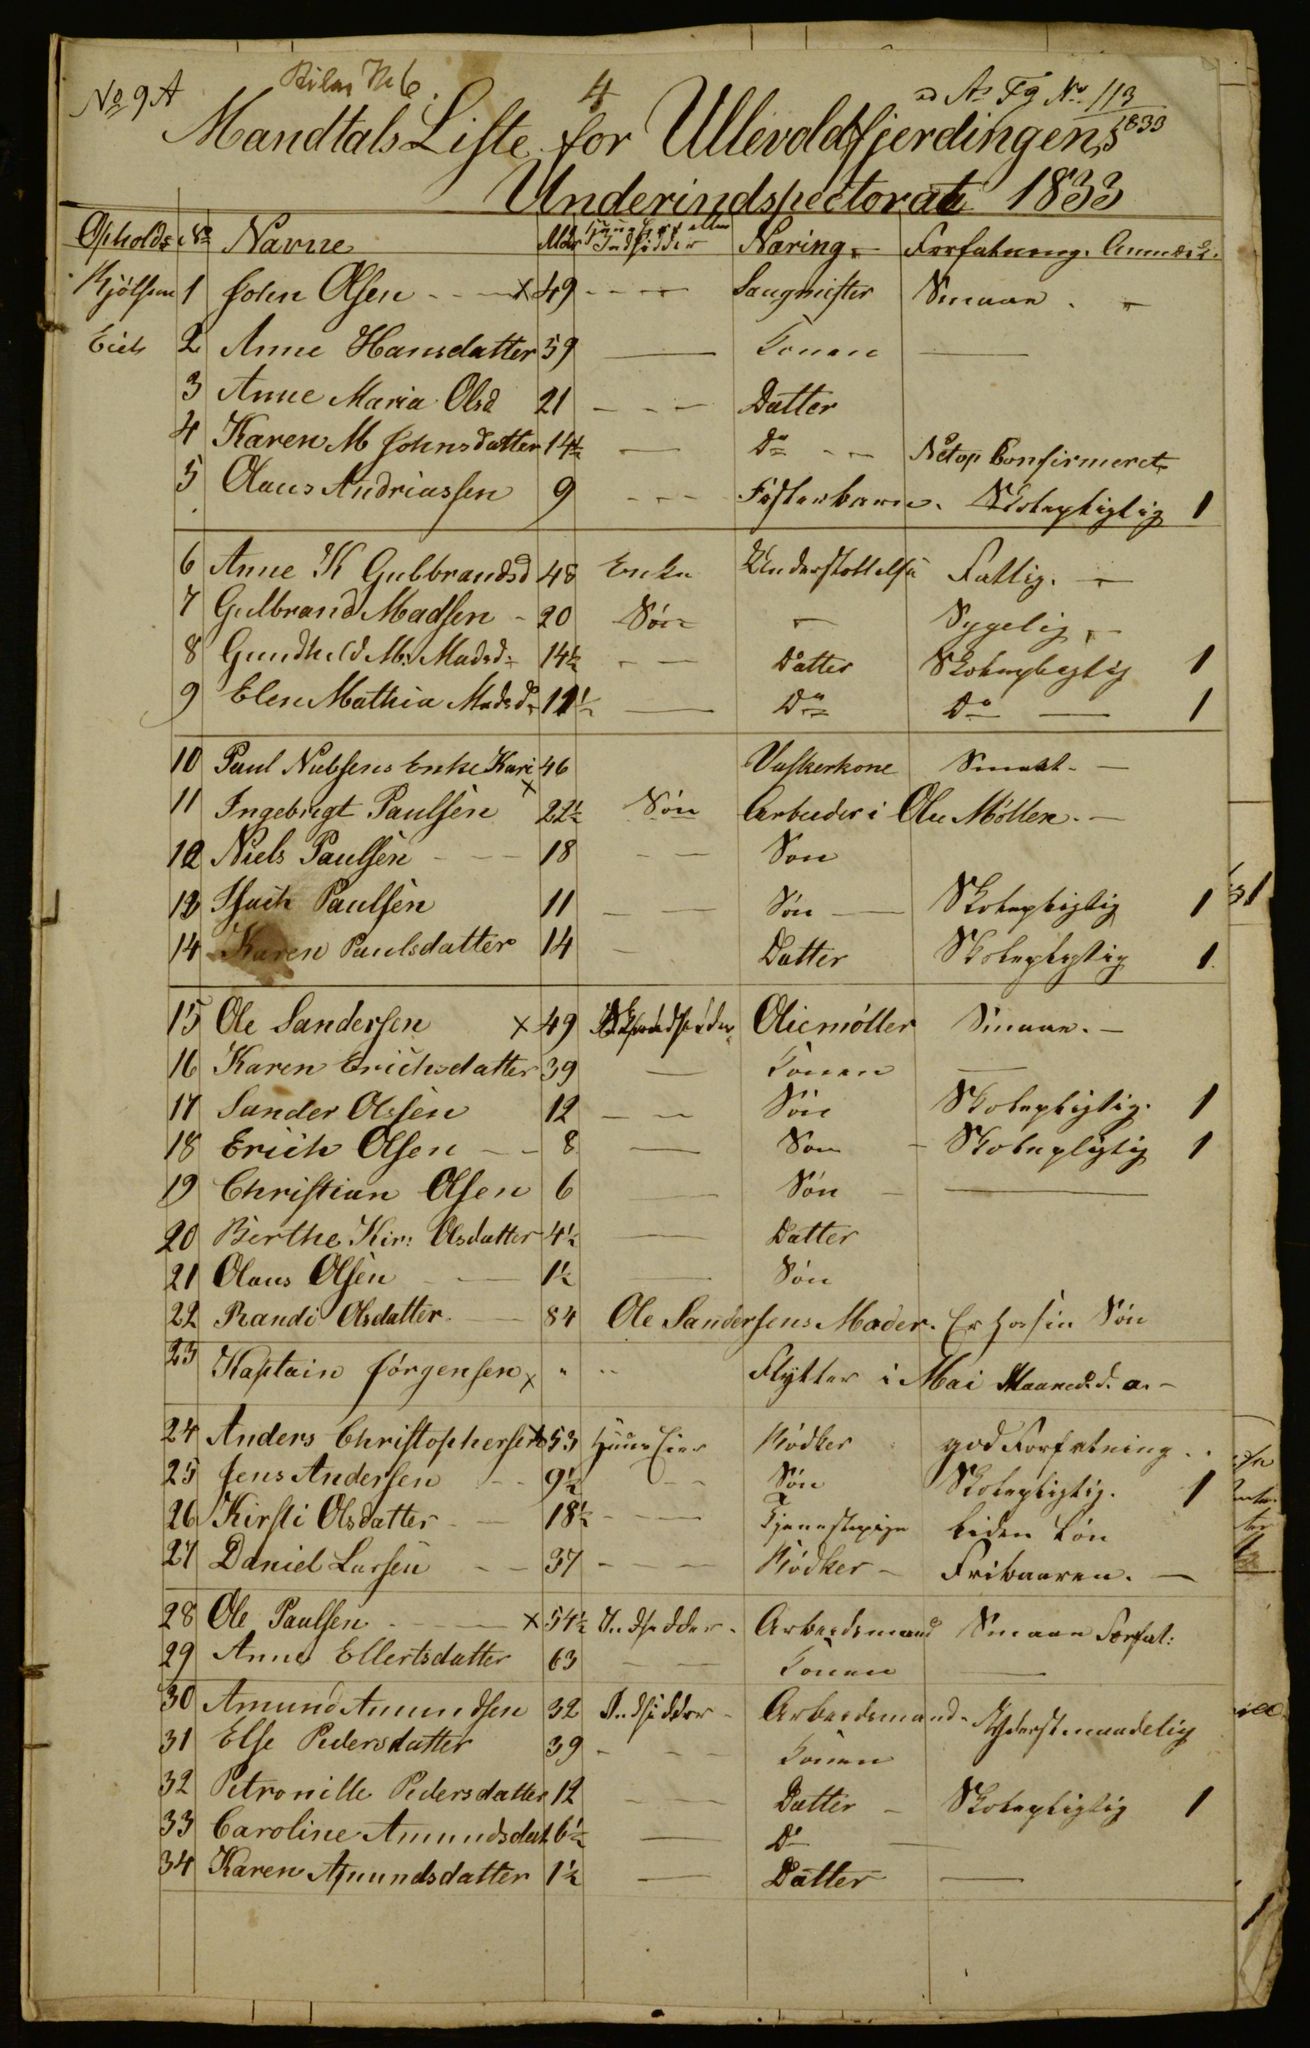 No 9 A
Bilag No 6.
4
ad As Fg No 113
1833
Mandtals Liste for Ullevoldfjerdingens
Underindspectorat 1833
Opholds No Navne Alder Huuseier eller Indsidder Næring Forfatning. Anmærk.
Kjølsen 1 John Olsen x 49 Saugmester Smaae
Eie 2 Anne Hansdatter 59 Konen
3 Anne Maria Olsd 21 Datter
4 Karen M Johnsdatter 14½ Do Netop Confirmeret
5 Olaus Andriassen 9 Fosterbarn. Skolepligtig 1
6 Anne K Gulbrandsd 48 Enke Understøttelse Fattig.
7 Gulbrand Madsen 20 Søn Sygelig
8 Gundhild M: Madsd: 14½ Datter Skolepligtig 1
9 Elen Mathia Madsd: 11½ Do Do 1
10 Paul Nielsens Enke Kari 46 Vaskerkone Smaat
11 Ingebrigt Paulsen x 22½ Søn Arbeider i Olie Møllen.
12 Niels Paulsen 18 Søn
13 Isach Paulsen 11 Søn Skolepligtig 1
14 Karen Paulsdatter 14 Datter Skolepligtig 1
15 Ole Sandersen x 49 Oliemøller Smaae.
16 Karen Erichsdatter 39 Konen
17 Sander Olssen 12 Søn Skolepligtig. 1
18 Erich Olsen 8 Søn Skolepligtig 1
19 Christian Olsen 6 Søn
20 Berthe Kir: Olsdatter 4½ Datter
21 Olaus Olsen 1½ Søn
22 Randi Olsdatter 84 Ole Sandersens Moder. Er hos sin Søn
23 Kaptain Jørgensen x Flytter i Mai Maaned d. a.
24 Anders Christophersen x 53 Huus Eier Bødker god Forfatning
25 Jens Andersen 9½ Søn Skolepligtig. 1
26 Kirsti Olsdatter 18½ Tjenestepige Liden Løn
27 Daniel Larsen 37 Bødker Fribaaren.
28 Ole Paulsen x 54½ Indsidder Arbeidsmand Smaae Forfat:
29 Anne Ellertsdatter 63 Konen
30 Amund Amundsen 32 Indsidder Arbeidsmand Yderst maadelig
31 Else Pedersdatter 39 Konen
32 Petronille Pedersdatter 12 Datter Skolepligtig 1
33 Caroline Amundsdat 6½ Do
34 Karen Amundsdatter 1½ Datter